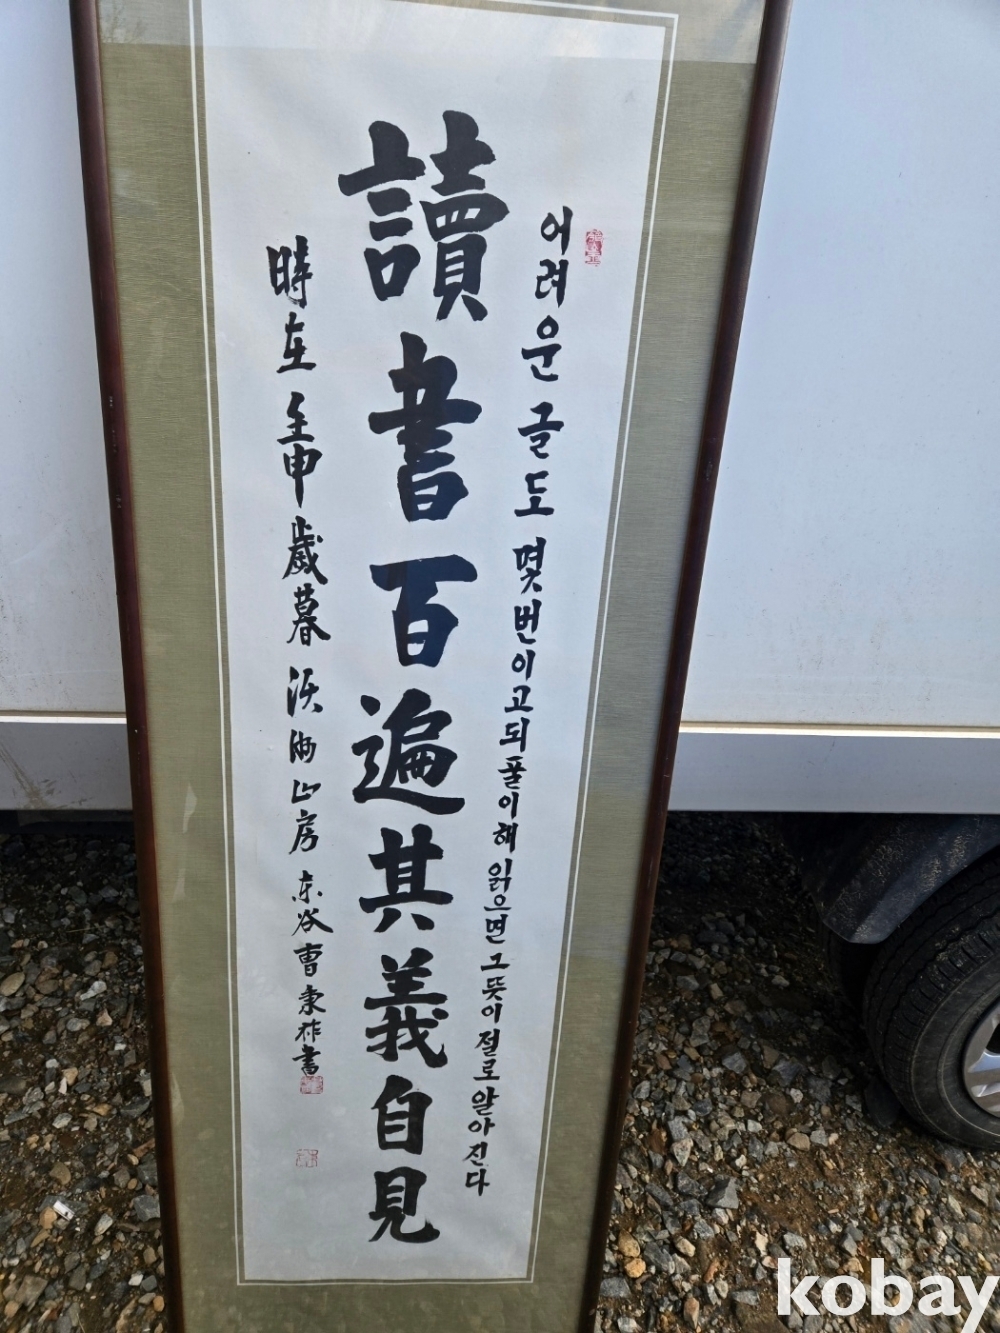 어려운 글도 몇번이고 되풀이해 읽으면 그 뜻이 절로 알아진다
讀書百遍其義自見
時在壬申歲暮 山房 東谷曺 書
kobay